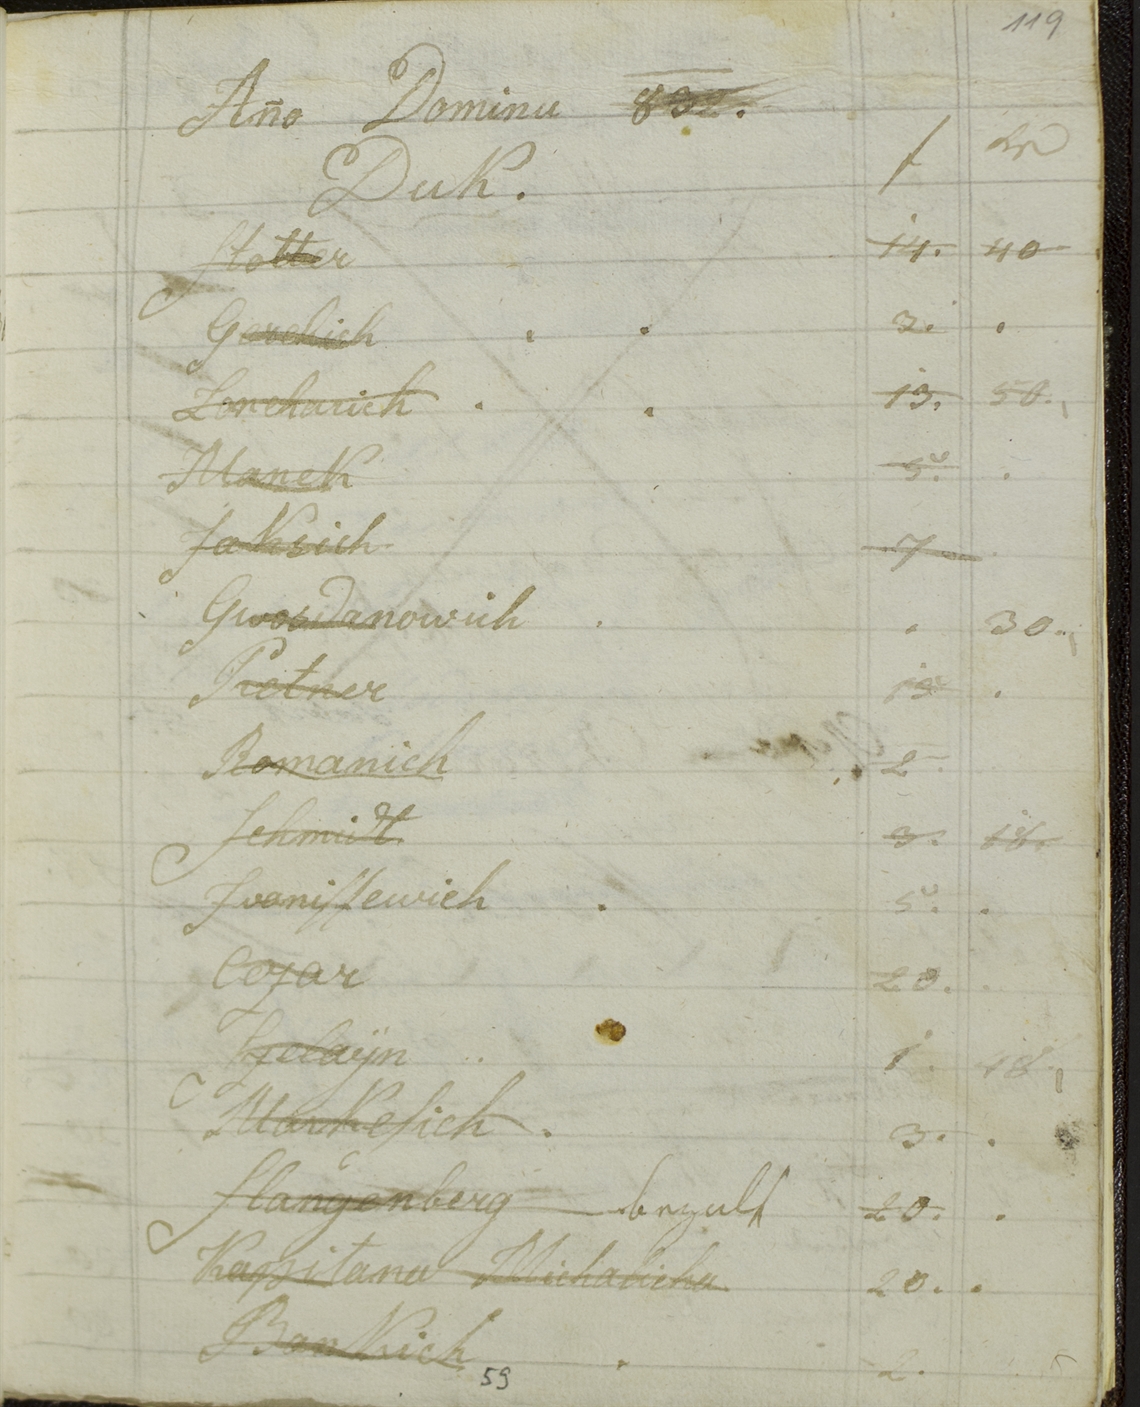 119
Año Dominu 832.
f
Duk.
Stotter 14. 40
Gerchich 3. .
Loncharich . . 13. 50.
Manek 5. .
Jaksich 7
Gwosdanowich . . 30.
Pletner 15 .
Romanich 2.
Schmidt 3. 18.
Ivanissewich . 5. .
Cozar 20. .
1. 48.
Markesich . 3. .
Slangenberg bezalt 20. .
Kapitanu Michalichu 20. .
Bankich . 2.
59